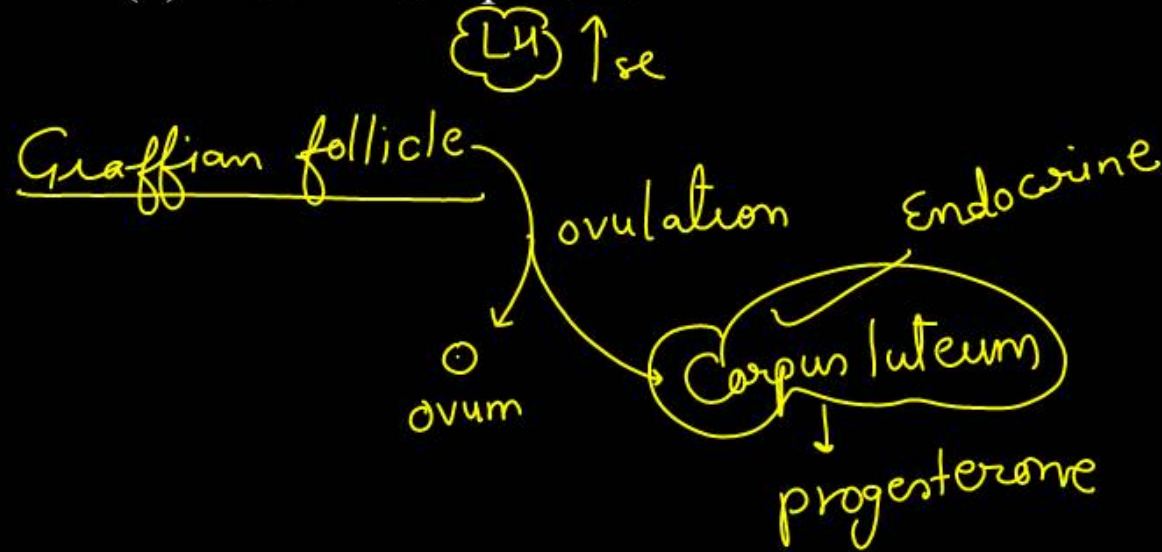 LH ↑se
Graffian follicle
ovulation
Endocrine
ovum
Corpus luteum
progesterone